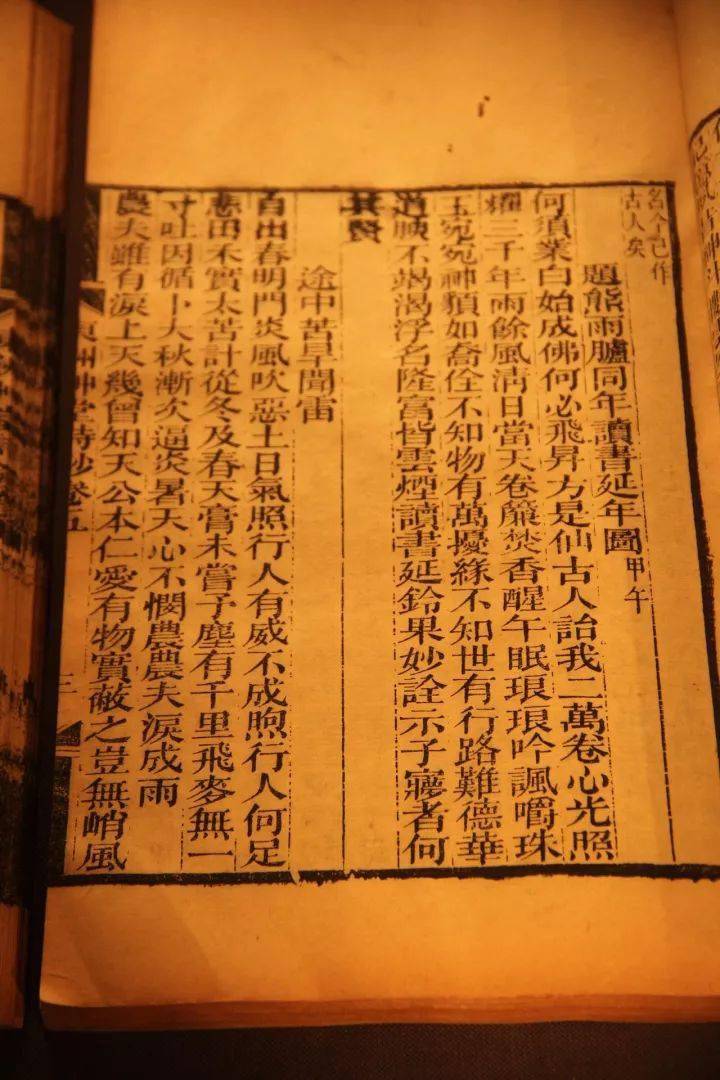 名今已作
古人矣
題熊雨臚同年讀書延年圖甲午
何須業白始成佛何必飛昇方是仙古人詒我二萬卷心光照
耀三千年雨餘風淸日當天卷簾焚香醒午眠琅琅吟諷嚼珠
玉宛宛神類如喬佺不知物有萬擾緣不知世有行路難德華
道腴不竭渴浮名隆富皆雲煙讀書延鈴果妙詮示子者何
其賢
途中苦旱聞雷
自出春明門炎風吹惡土日氣照行人有威不成煦行人何足
悲田禾實太苦計從冬及春天膏未嘗予塵有千里飛麥無一
寸吐因循卜大秋漸次逼炎暑天心不憫農農夫淚成雨
農夫雖有淚上天幾曾知天公本仁愛有物實蔽之豈無峭風
東洲艸堂詩鈔卷五